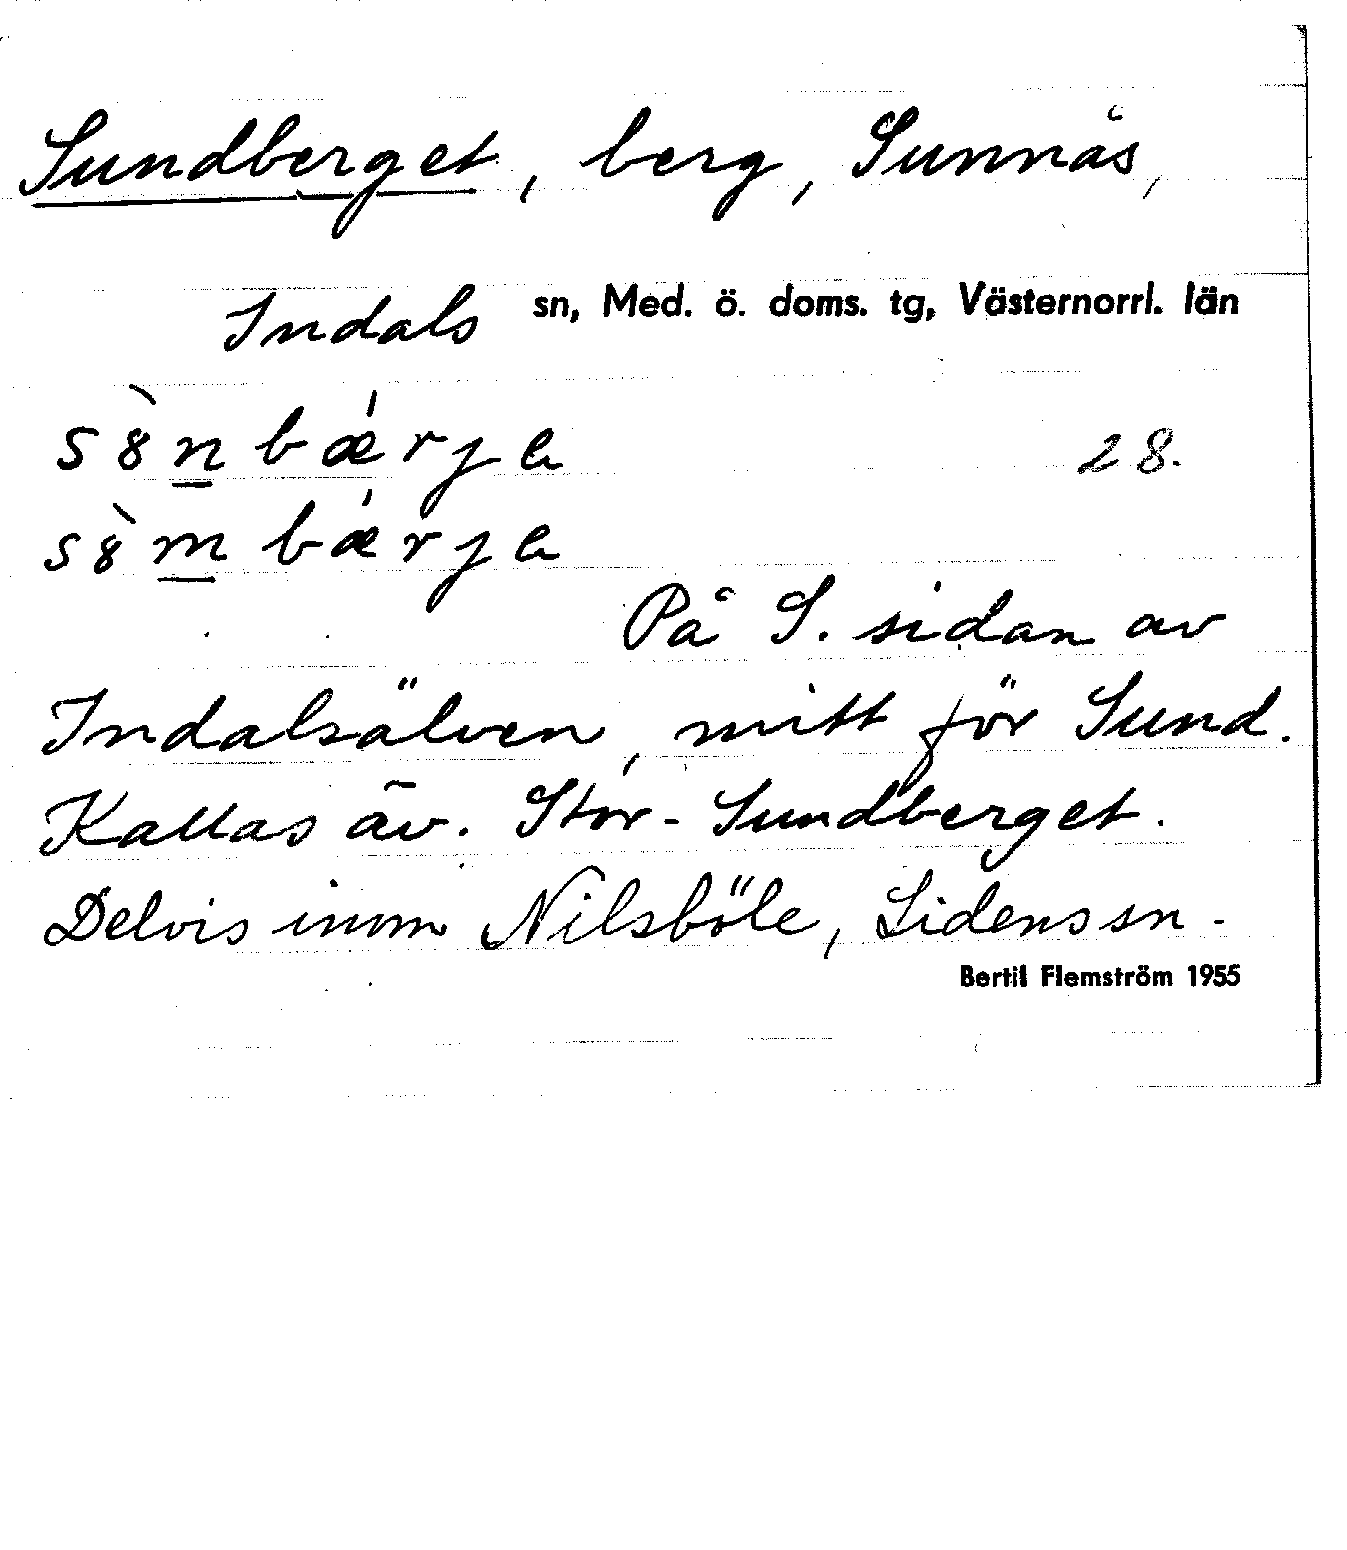 Sundberget, berg, Sunnås,
Indals sn, Med. ö. doms. tg, Västernorrl. län
sȣ̀nbǽrjɐ 28.
sȣ̀mbǽrjɐ
På S. sidan av
Indalsälven, mitt för Sund.
Kallas äv. Stor-Sundberget.
Delvis inom Nilsböle, Lidens sn.
Bertil Flemström 1955